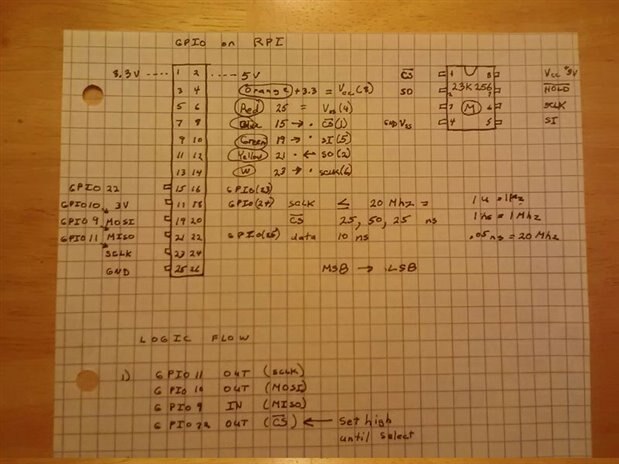 GPIO on RPI
3.3V ---- 1 2 ---- 5V
3 4 Orange +3.3 = Vcc(8)
5 6 Red 25 = Vss(4)
7 8 Blue 15 → CS(1)
9 10 Green 19 → SI(5)
11 12 Yellow 21 ← SO(2)
13 14 W 23 → SCLK(6)
CS 1 8 Vcc +3V
SO 2 23K256 7 HOLD
3 M 6 SCLK
GND Vss 4 5 SI
GPIO 22 15 16 GPIO(23)
GPIO 10 3V 17 18 GPIO(24) SCLK ≤ 20 Mhz =
GPIO 9 MOSI 19 20 CS 25, 50, 25 ns
GPIO 11 MISO 21 22 GPIO(25) data 10 ns
SCLK 23 24
GND 25 26 MSB → LSB
1 hs = 1 Mhz
.05 ns = 20 Mhz
LOGIC FLOW
1) GPIO 11 OUT (SCLK)
GPIO 10 OUT (MOSI)
GPIO 9 IN (MISO)
GPIO 22 OUT (CS) ← Set high
until select